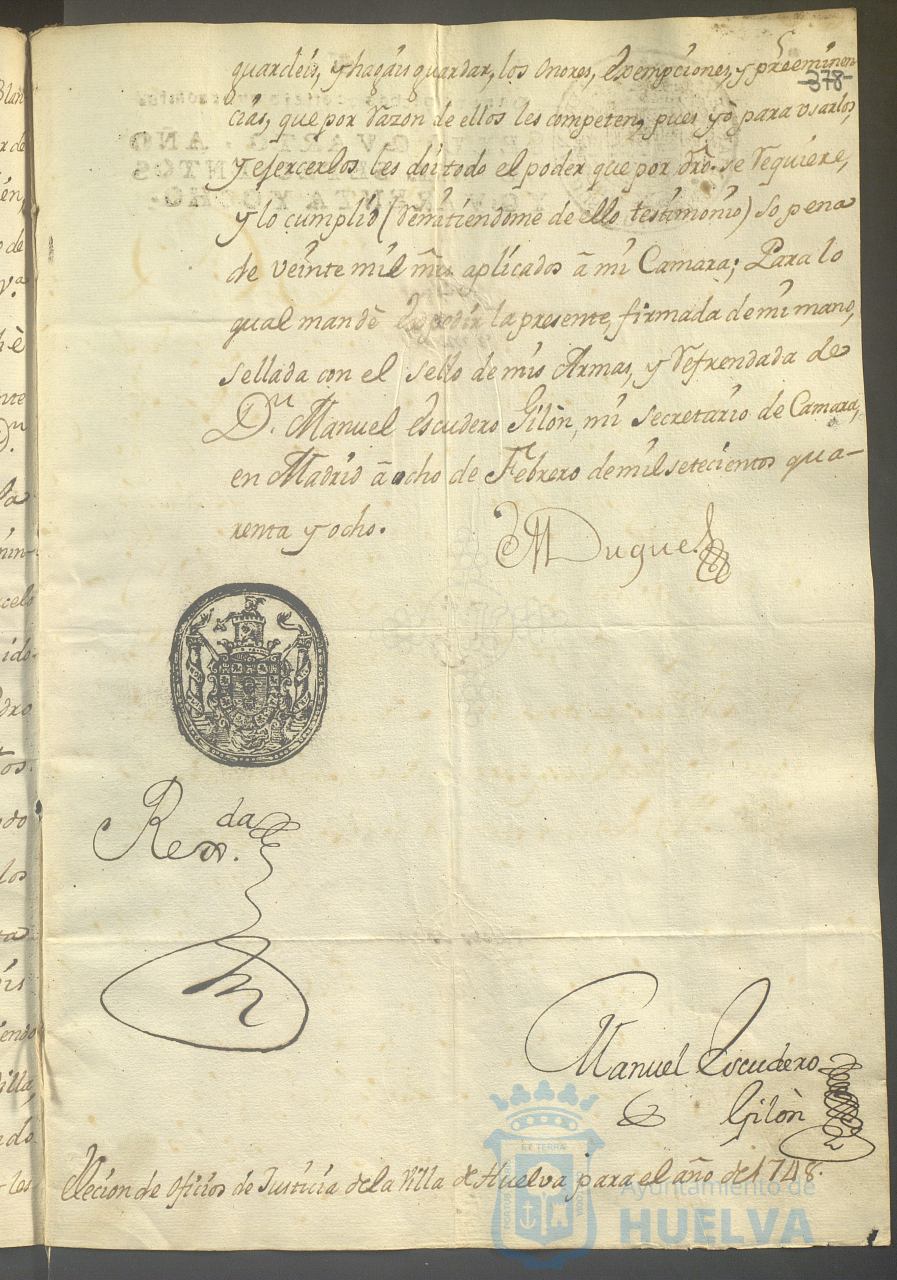 guardeis, y hagais guardar, los onores, exempciones, y preeminen
-378-
cias, que por razon de ellos les competen, pues yò para usarlos,
y esercerlos les doi todo el poder que por dro. se requiere,
y lo cumplid (remitiendome de ello testimonio) so pena
de veinte mil mrs aplicados â mi Camara; Para lo
qual mandè expedir la presente, firmada de mi mano,
sellada con el sello de mis Armas, y refrendada de
Dn. Manuel Escudero Gilòn, mi secretario de Camara,
en Madrid â ocho de Febrero de mil setecientos qua-
renta y ocho.
Duque
Rexda.
Manuel Escudero
Gilòn
Eleción de oficios de Justicia de la Villa de Huelva para el año de 1748.
Ayuntamiento de
HUELVA